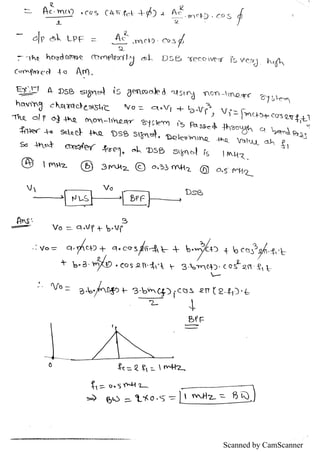 = Ac² . m(t) . cos (4πfct + ϕ) + Ac² . m(t) . cos ϕ
2 2
– o/p of LPF = Ac² . m(t) . cosϕ.
2
– The hardware complexity of DSB receiver is very high
compared to AM.
Ex:- A DSB signal is generated using non-linear system
having characteristic Vo = a.Vi + b.Vi³, Vi = [m(t) + cos2πf1t]
The o/p of the non-linear system is passed through a band pass
filter to select the DSB signal, Determine the value of f1
so that carrier freq. of DSB signal is 1MHz.
Ⓐ 1 MHz Ⓑ 3MHz Ⓒ 0.33 MHz Ⓓ 0.5 MHz
Vi → NLS → Vo → BPF → DSB
Ans: Vo = a.Vi + b.Vi³
∴ Vo = a.m(t) + a.cos2πf1t + b.m³(t) + b cos³2πf1t
+ b.3.m²(t) . cos 2π.f1t + 3.b m(t). cos² 2π f1t
∴ Vo = 3.b.m(t) + 3.b m(t) . cos 2π [2.f1].t
2
↓
BPF
0 fc = 2 f1 = 1 MHz
f1 = 0.5 MHz
⇒ BW = 2×0.5 = 1 MHz = BW
Scanned by CamScanner